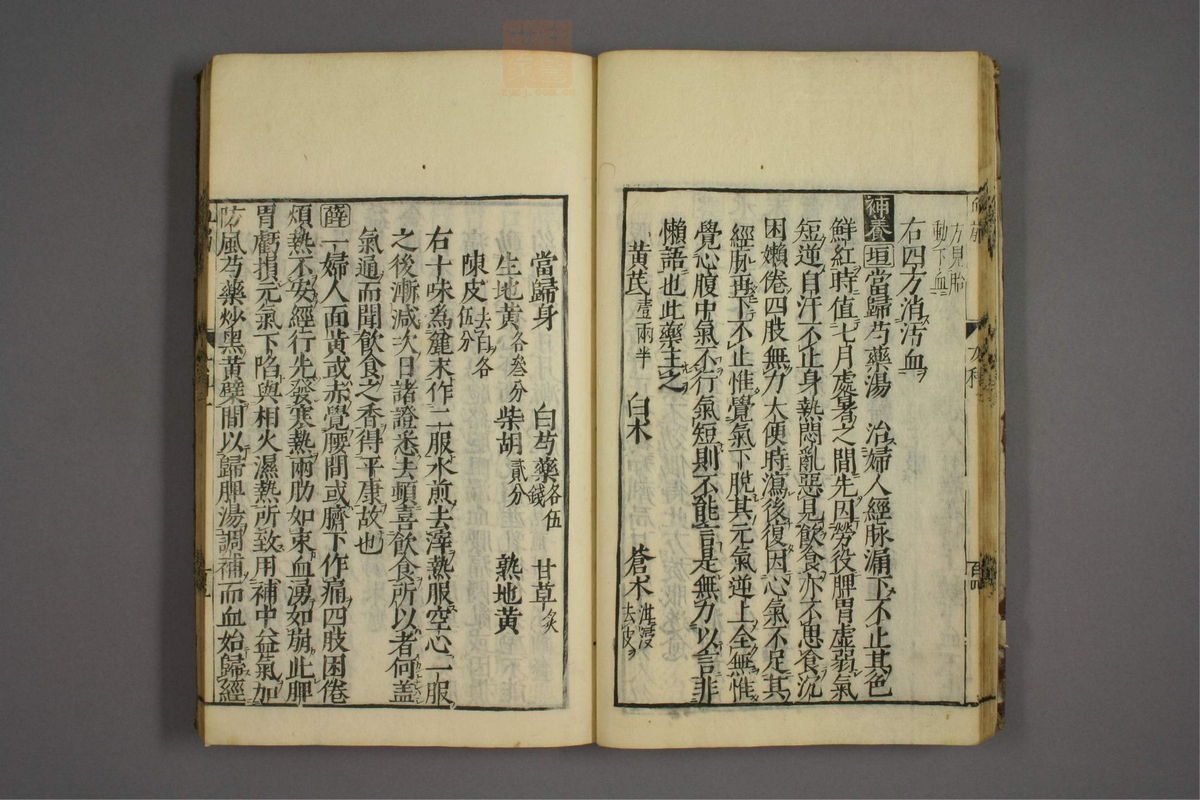 方見胎
動下血
右四方消汚血
補養 垣 當歸芍藥湯 治婦人經脉漏下不止其色
鮮紅時值七月處暑之間先因勞役脾胃虛弱氣
短逆自汗不止身熱悶亂惡見飲食亦不思食沉
困嬾倦四肢無力大便時瀉後復因心氣不足其
經脉再下不止惟覺氣下脫其元氣逆上全無惟
覺心腹中氣不行氣短則不能言是無力以言非
懶語也此藥主之
黃芪壹兩半 白朮 蒼朮泔浸去皮
當歸身 白芍藥各伍錢 甘草炙
生地黃各叁分 柴胡貳分 熟地黃
陳皮去白各伍分
右十味為麄末作二服水煎去滓熱服空心一服
之後漸減次日諸證悉去頓喜飲食所以者何蓋
氣通而聞飲食之香得平康故也
薛 一婦人面黃或赤覺腰間或臍下作痛四肢困倦
煩熱不安經行先發寒熱兩肋如束血湧如崩此脾
胃虧損元氣下陷與相火濕熱所致用補中益氣加
防風芍藥炒黑黃蘗間以歸脾湯調補而血始歸經